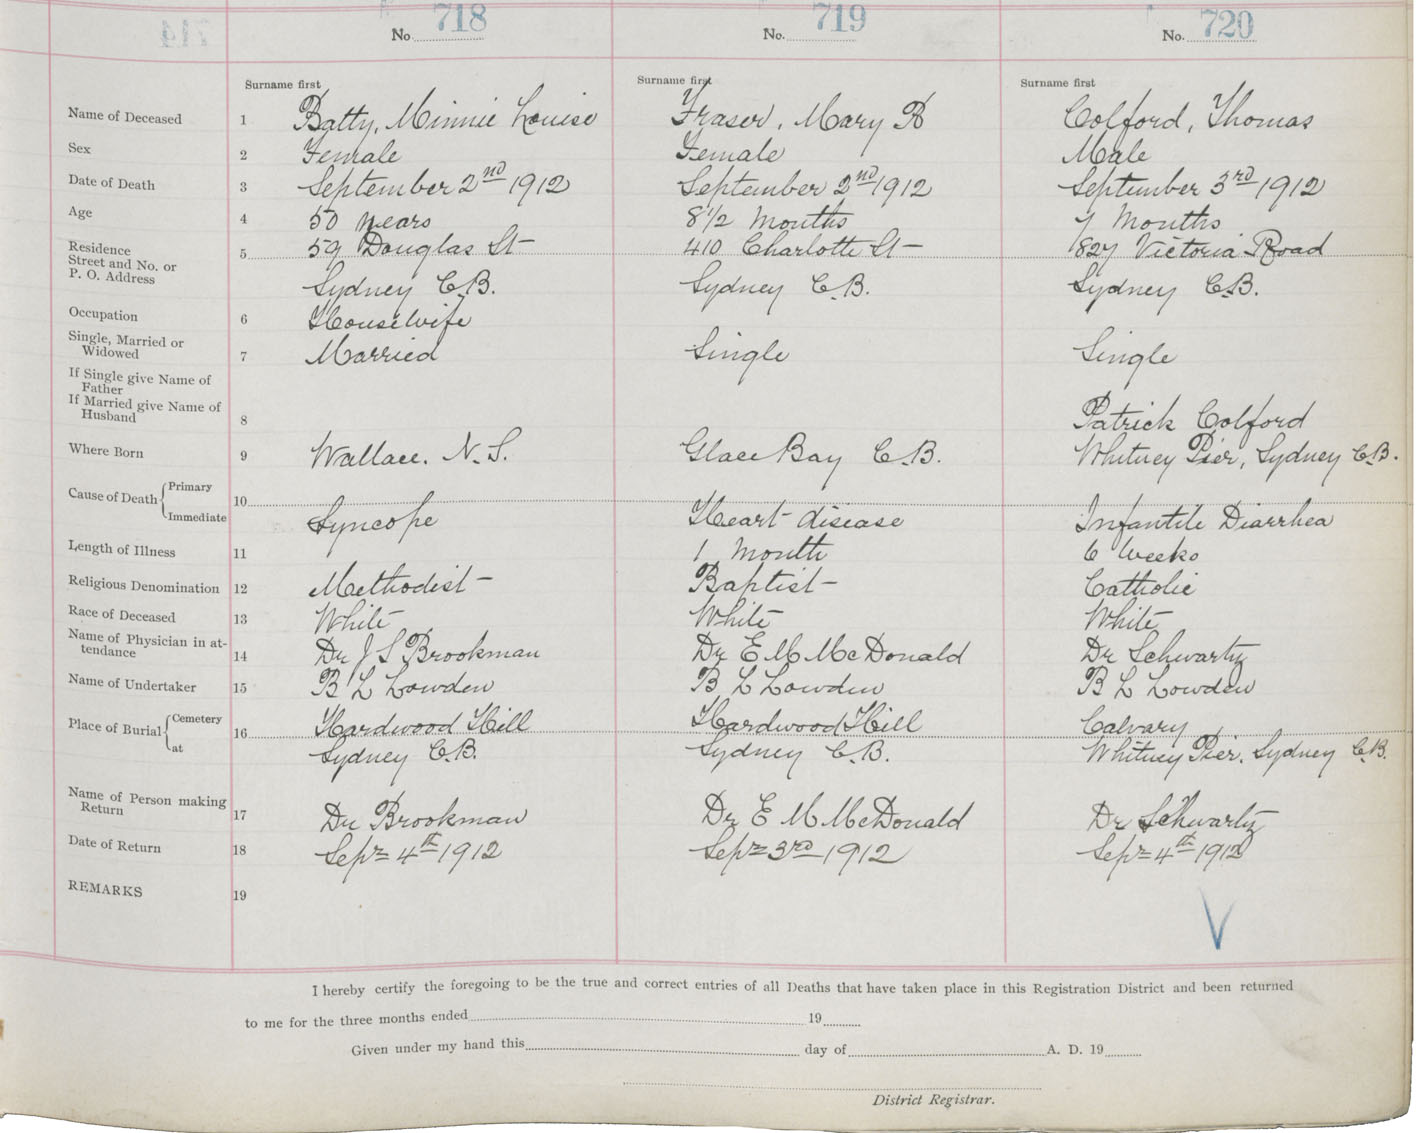 No. 718 No. 719 No. 720
Surname first Surname first Surname first
Name of Deceased 1 Batty, Minnie Louise Fraser, Mary A Colford, Thomas
Sex 2 Female Female Male
Date of Death 3 September 2nd 1912 September 2nd 1912 September 3rd 1912
Age 4 50 years 8 1/2 Months 7 Months
Residence
Street and No. or 5 59 Douglas St 410 Charlotte St 827 Victoria Road
P. O. Address Sydney C.B. Sydney C.B. Sydney C.B.
Occupation 6 Housewife
Single, Married or
Widowed 7 Married Single Single
If Single give Name of
Father
If Married give Name of
Husband 8 Patrick Colford
Where Born 9 Wallace. N.S. Glace Bay C.B. Whitney Pier, Sydney C.B.
Cause of Death Primary 10
Immediate Syncope Heart disease Infantile Diarrhea
Length of Illness 11 1 Month 6 Weeks
Religious Denomination 12 Methodist Baptist Catholic
Race of Deceased 13 White White White
Name of Physician in at-
tendance 14 Dr J S Brookman Dr E M McDonald Dr Schwartz
Name of Undertaker 15 B L Lowden B L Lowden B L Lowden
Place of Burial Cemetery 16 Hardwood Hill Hardwood Hill Calvary
at Sydney C.B. Sydney C.B. Whitney Pier. Sydney C.B.
Name of Person making
Return 17 Dr Brookman Dr E M McDonald Dr Schwartz
Date of Return 18 Sept 4th 1912 Sept 3rd 1912 Sept 4th 1912
REMARKS 19
I hereby certify the foregoing to be the true and correct entries of all Deaths that have taken place in this Registration District and been returned
to me for the three months ended 19
Given under my hand this day of A. D. 19
District Registrar.